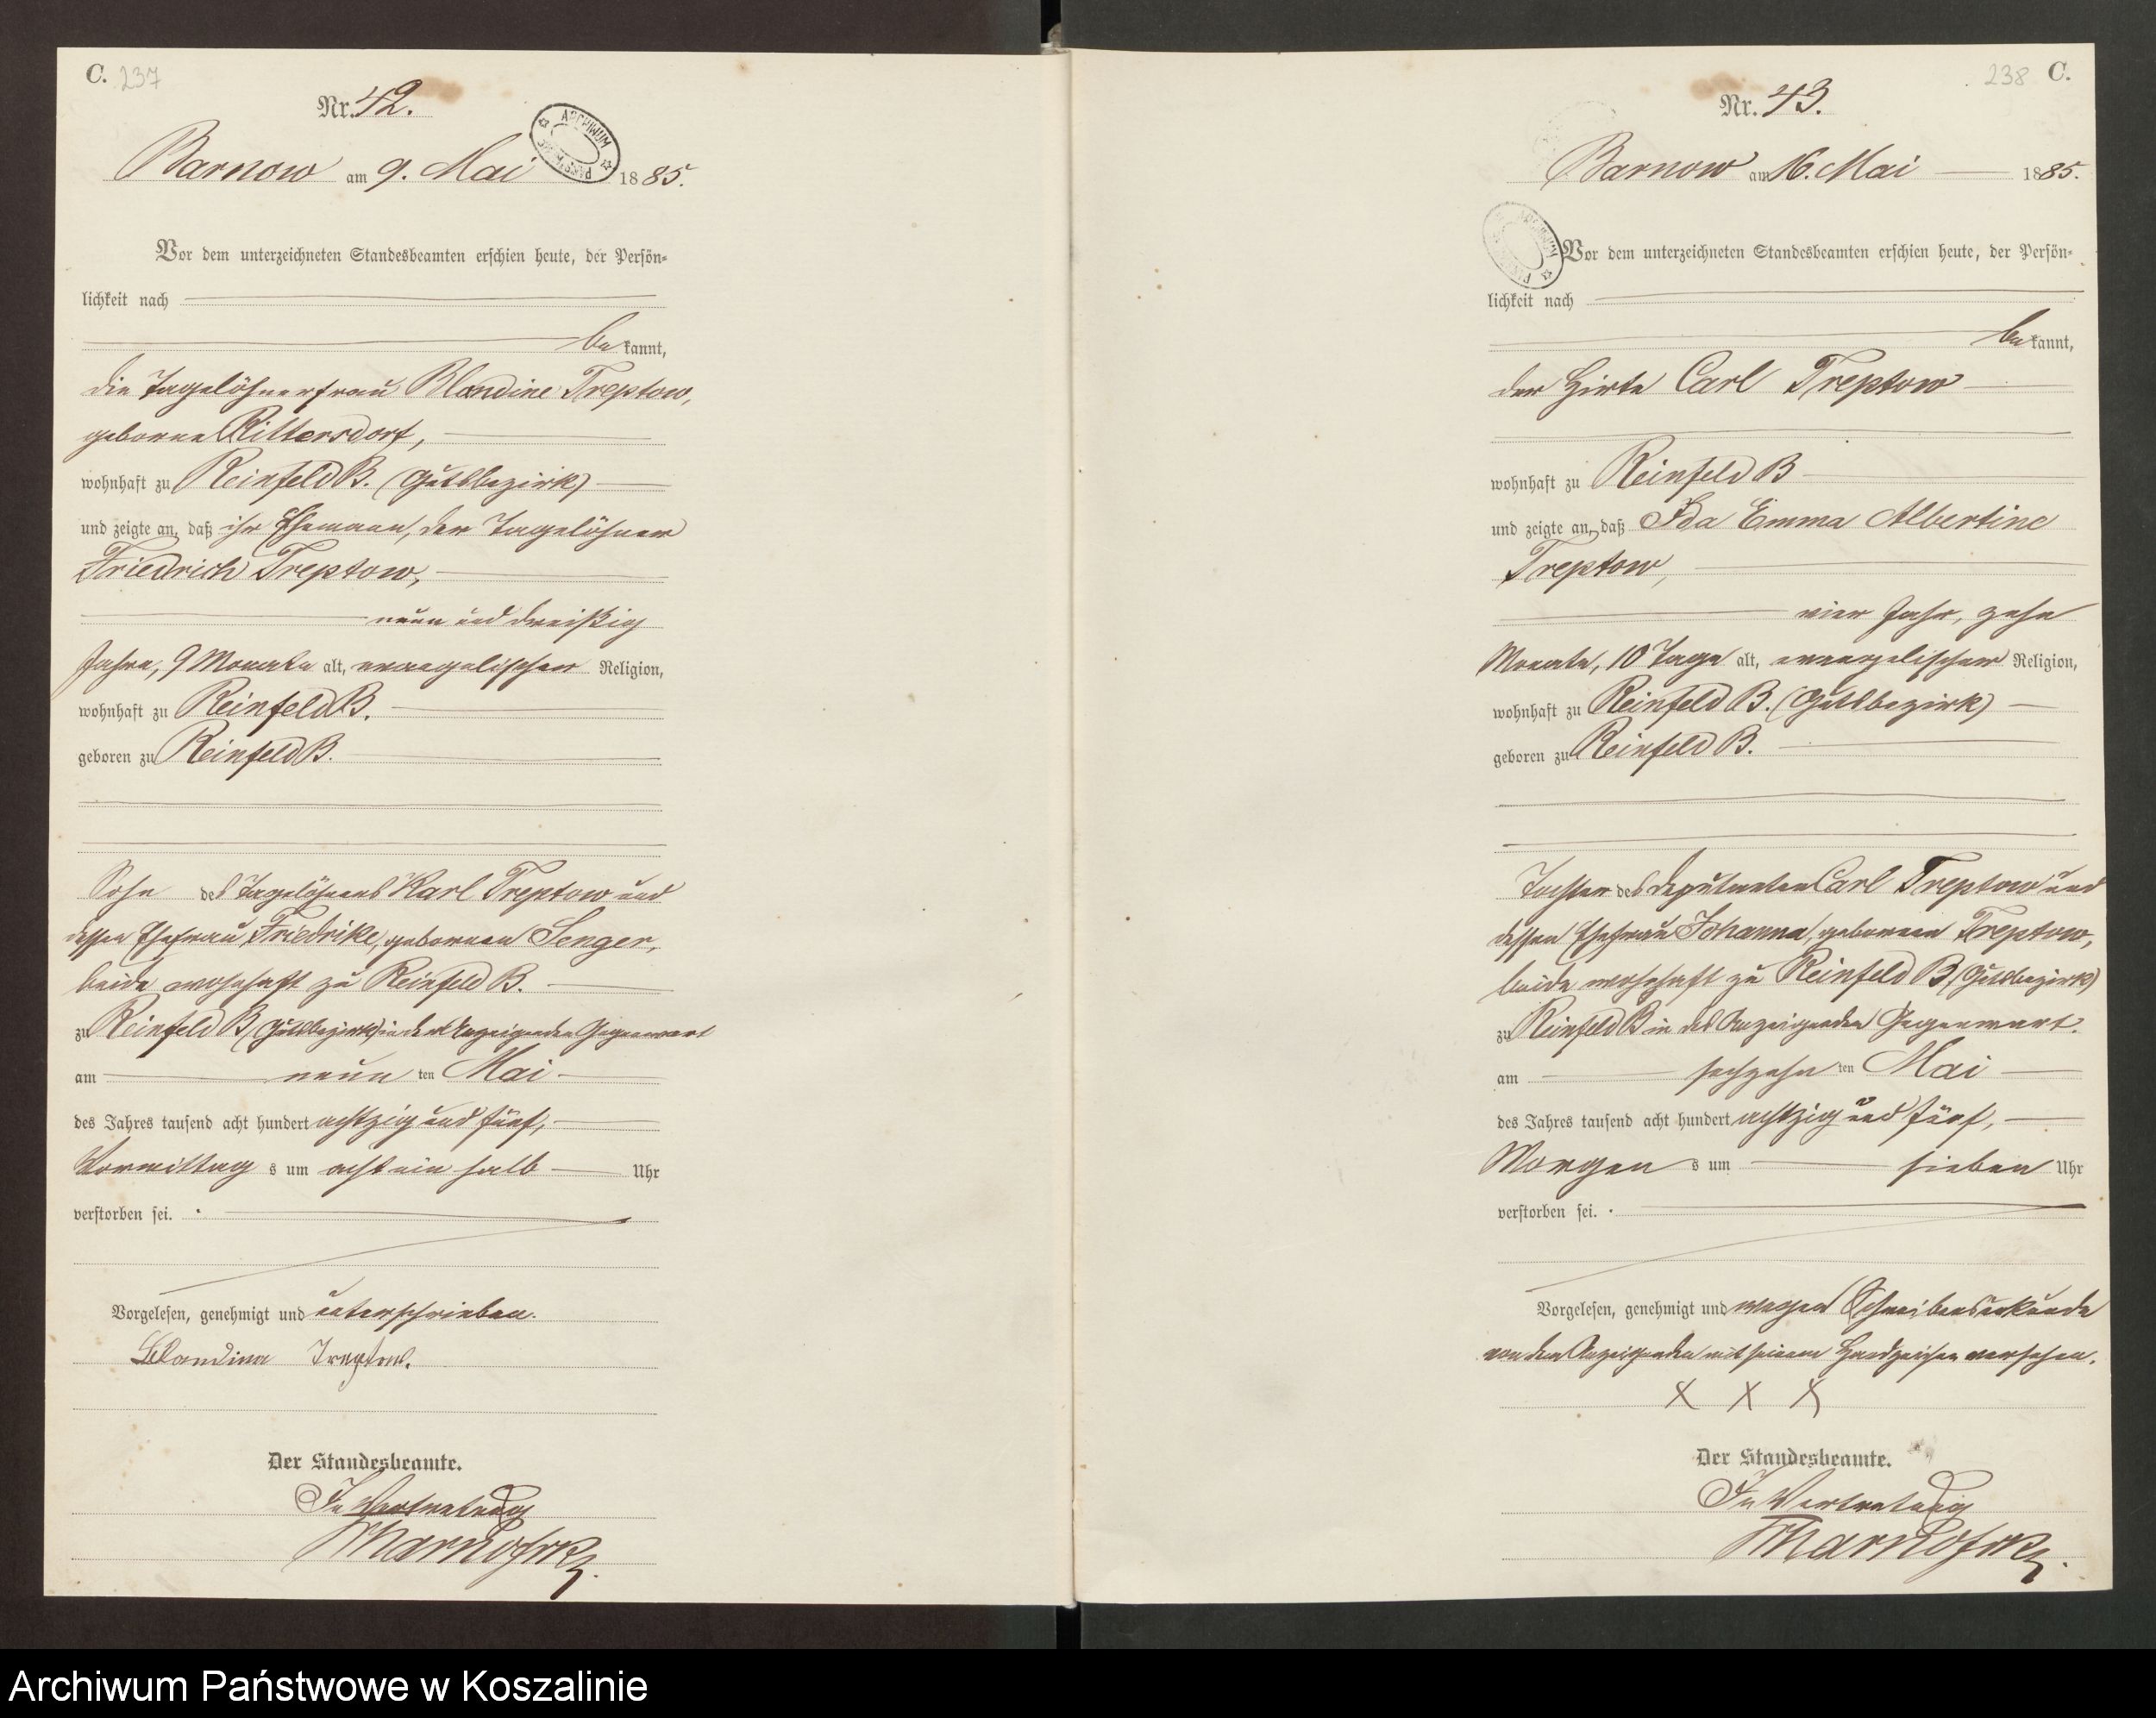 C. 237
Nr. 42.
Barnow am 9. Mai 1885.
ARCHIWUM
Vor dem unterzeichneten Standesbeamten erschien heute, der Persön-
lichkeit nach
bekannt,
die Tagelöhnerfrau Blandine Treptow,
geborne Rittersdorf,
wohnhaft zu Reinfeld B. (Gutsbezirk)
und zeigte an, daß ihr Ehemann, der Tagelöhner
Friedrich Treptow,
neun und dreißig
Jahre, 9 Monate alt, evangelischer Religion,
wohnhaft zu Reinfeld B.
geboren zu Reinfeld B.
Sohn des Tagelöhners Karl Treptow und
dessen Ehefrau Friedrike, gebornen Senger,
beide wohnhaft zu Reinfeld B.
zu Reinfeld B (Gutsbezirk) in der Anzeigenden Gegenwart
am neun ten Mai
des Jahres tausend acht hundert achtzig und fünf,
Vormittag s um acht ein halb Uhr
verstorben sei.
Vorgelesen, genehmigt und unterschrieben.
Blandine Treptow.
Der Standesbeamte.
In Vertretung
238 C.
Nr. 43.
Barnow am 16. Mai 1885.
ARCHIWUM
Vor dem unterzeichneten Standesbeamten erschien heute, der Persön-
lichkeit nach
bekannt,
der Hirte Carl Treptow
wohnhaft zu Reinfeld B
und zeigte an, daß Ida Emma Albertine
Treptow,
vier Jahr, zehn
Monate, 10 Tage alt, evangelischer Religion,
wohnhaft zu Reinfeld B. (Gutsbezirk)
geboren zu Reinfeld B.
Tochter des Deputanten Carl Treptow und
dessen Ehefrau Johanna, gebornen Treptow,
beide wohnhaft zu Reinfeld B (Gutsbezirk)
zu Reinfeld B in des Anzeigenden Gegenwart.
am sechzehn ten Mai
des Jahres tausend acht hundert achtzig und fünf,
Morgen s um sieben Uhr
verstorben sei.
Vorgelesen, genehmigt und wegen Schreibensunkunde
von dem Anzeigenden mit seinem Handzeichen versehen.
X X X
Der Standesbeamte.
In Vertretung
Archiwum Państwowe w Koszalinie